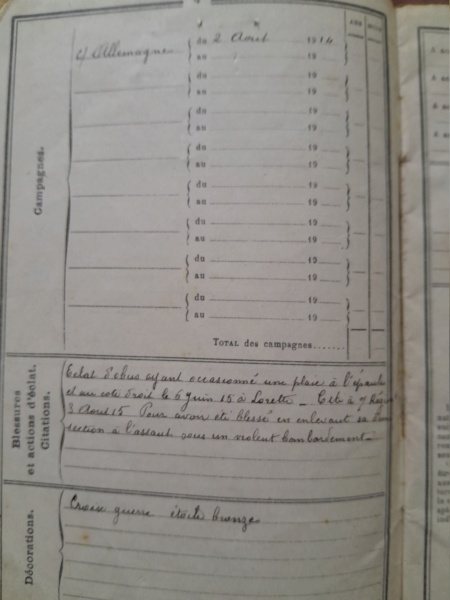 ANS
du 2 Aout 1914
c/ Allemagne
au 19
du 19
au 19
du 19
au 19
du 19
au 19
du 19
au 19
du 19
au 19
du 19
au 19
du 19
au 19
Campagnes.
TOTAL des campagnes
Blessures
et actions d'éclat.
Citations.
Eclat d'obus ayant occasionné une plaie à l'épaule
et au coté droit le 6 juin 15 à Lorette - Cité à
3 Aout 15 Pour avoir été blessé en enlevant sa
section à l'assaut sous un violent bombardement
Décorations.
Croix guerre étoile bronze